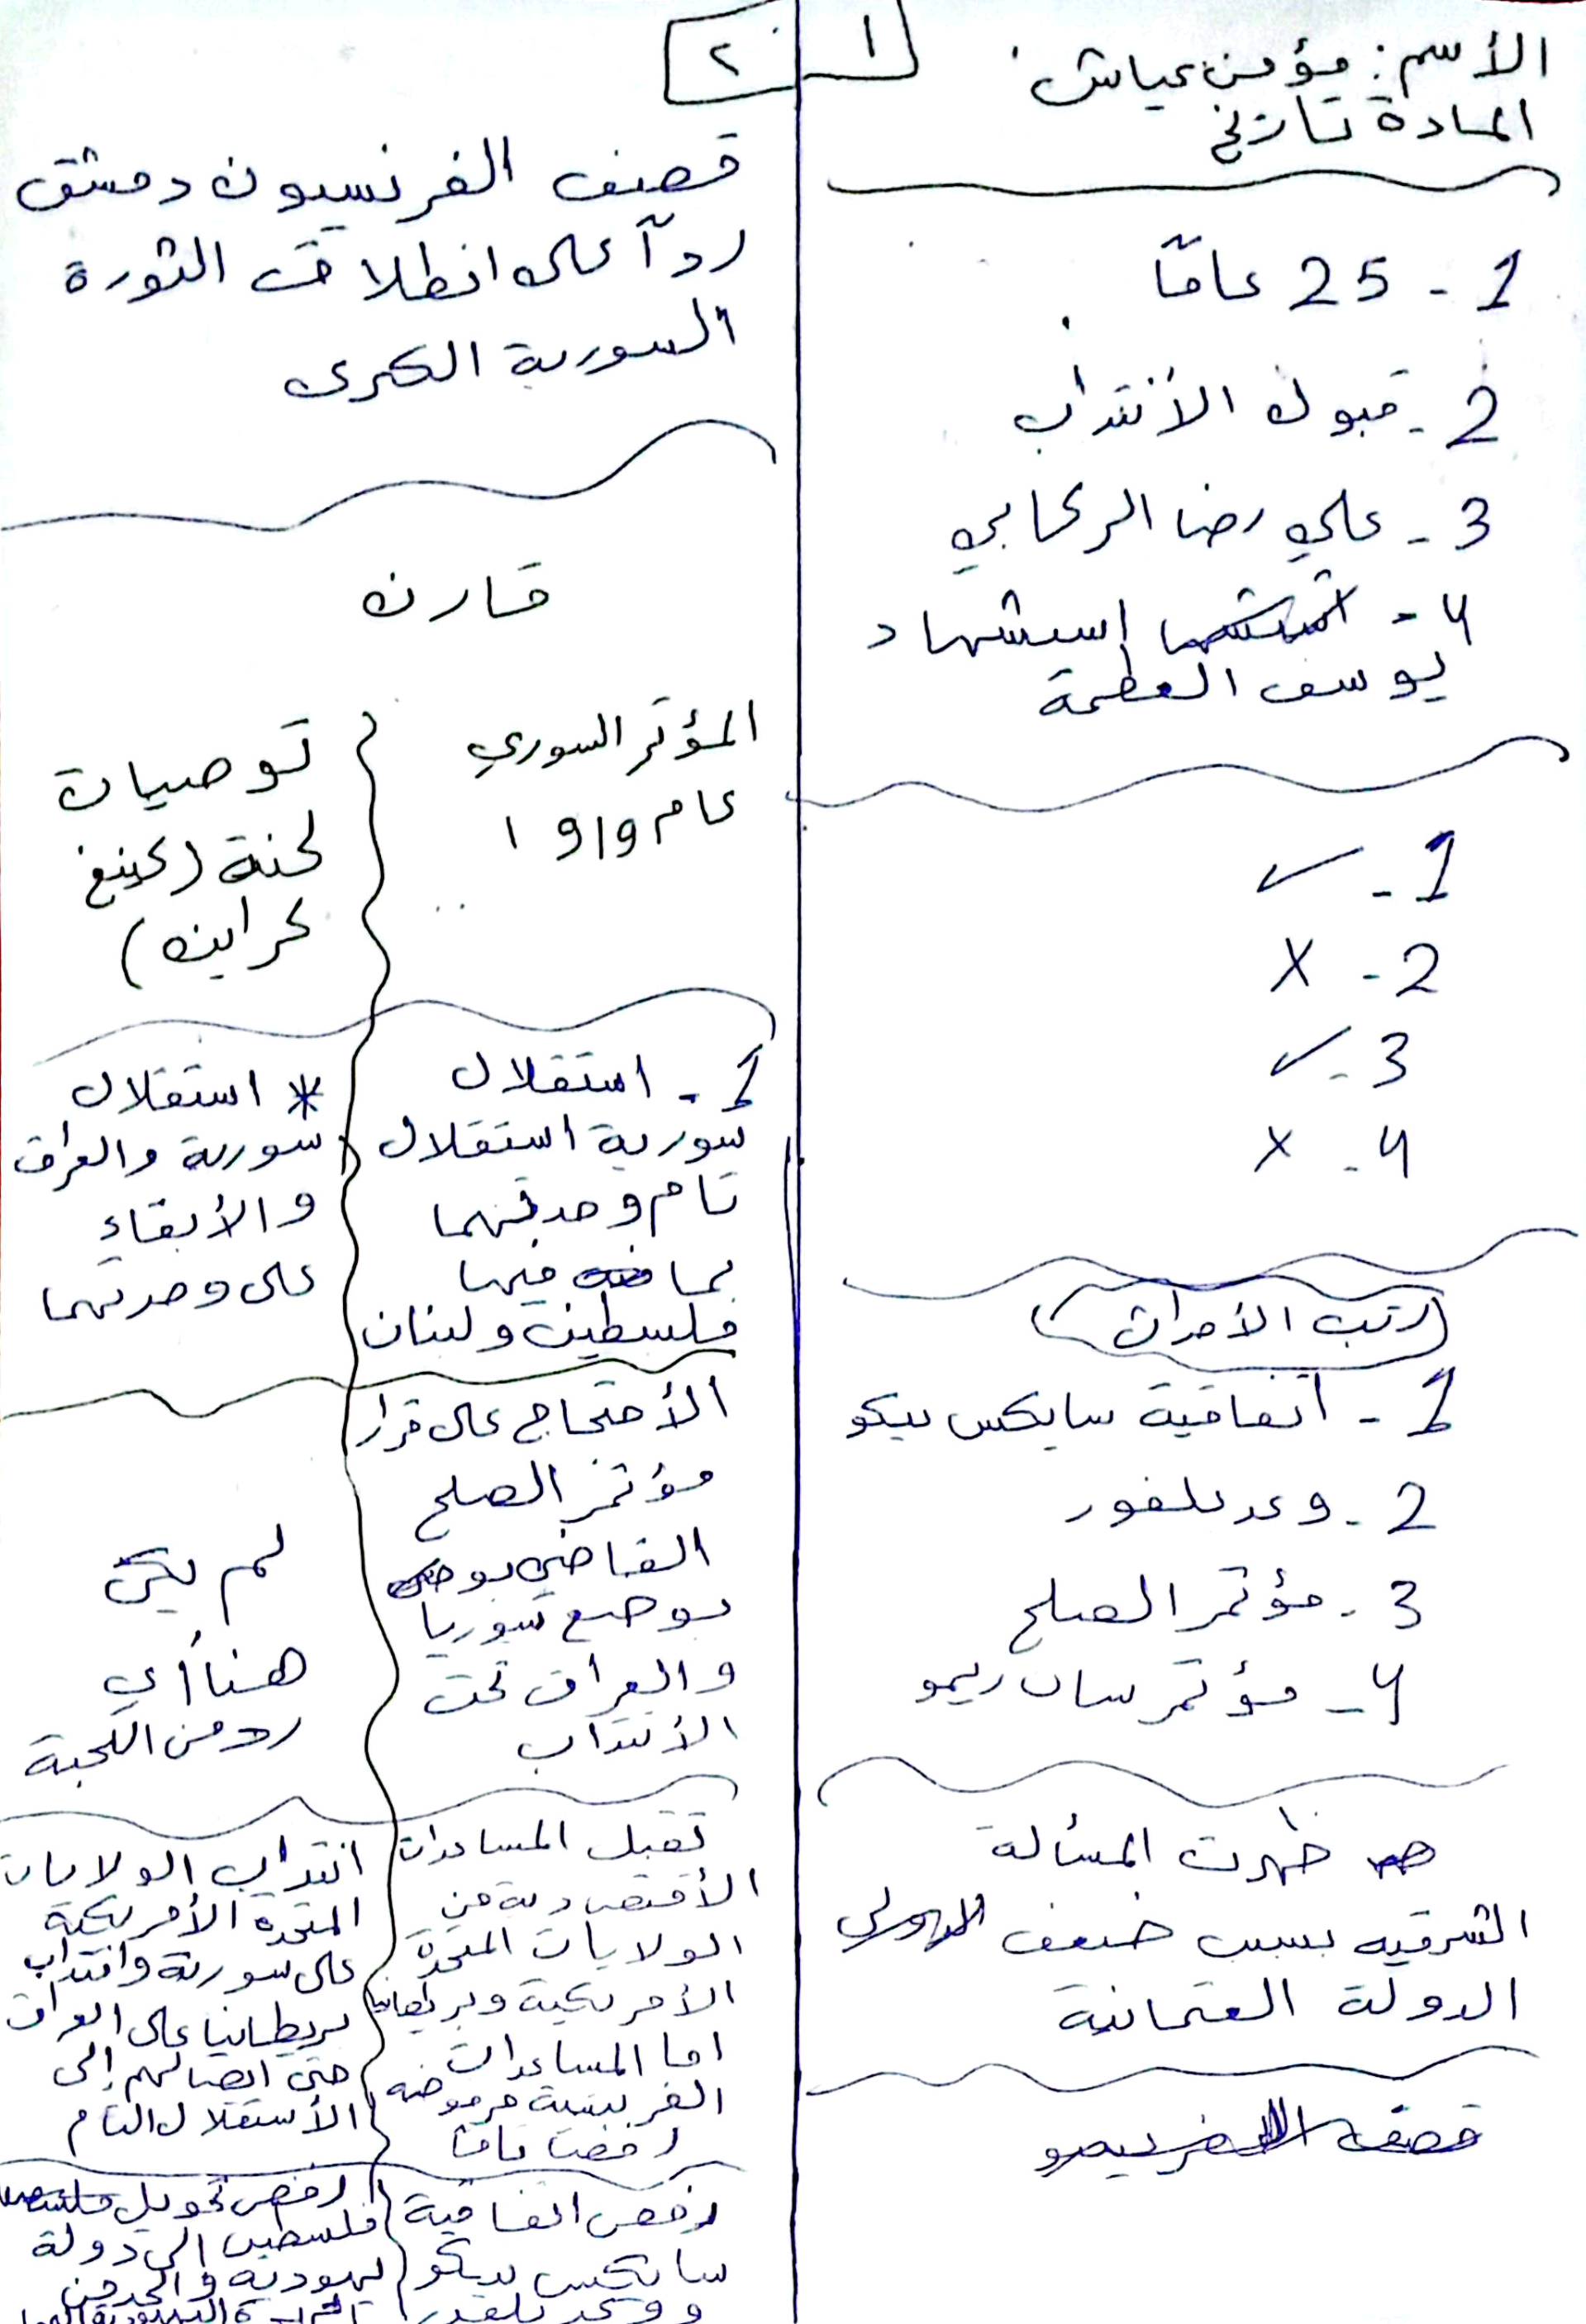 ١
الأسم: مؤمن عياش
المادة تاريخ
1 - 25 عامًا
2 - قبول الأنتداب
3 - علي رضا الركابي
4 - استشهاد
يوسف العظمة
1 - ✓
2 - X
3 - ✓
4 - X
(رتب الأحداث)
1 - اتفاقية سايكس بيكو
2 - وعد بلفور
3 - مؤتمر الصلح
4 - مؤتمر سان ريمو
ظهرت المسألة
الشرقيه بسبب ضعف
الدولة العثمانية
٢
قصف الفرنسيون دمشق
ردآ على انطلاق الثورة
السورية الكبرى
قارن
المؤتمر السوري
عام ١٩١٩
توصيات
لجنة (كينغ
كراين)
1 - استقلال
سورية استقلال
تام وحدتهما
بما فيها
فلسطين ولبنان
* استقلال
سورية والعراق
والأبقاء
على وحدتهما
الأحتجاج على قرار
مؤتمر الصلح
القاضي
بوضع سوريا
والعراق تحت
الأنتداب
لم يكن
هنا أي
رد من اللجنة
تقبل المساعدات
الأقتصادية من
الولايات المتحدة
الأمريكية وبريطانيا
اما المساعدات
الفرنسية مرفوضه
رفضا تامًا
انتداب الولايات
المتحده الأمريكية
على سورية وانتداب
بريطانيا على العراق
حتى ايصالهم إلى
الأستقلال التام
رفض اتفاقية
سايكس بيكو
ووعد بلفور
رفض تحويل
فلسطين الى دولة
يهودية والحد من
الهجرة اليهودية إليها